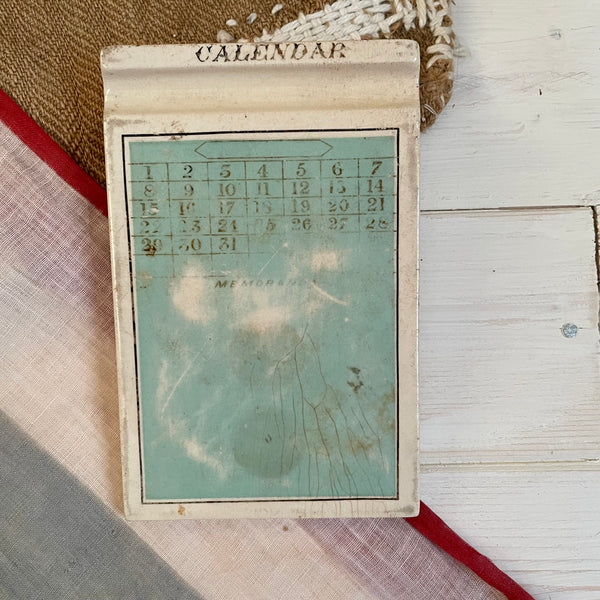 CALENDAR
1 2 3 4 5 6 7
8 9 10 11 12 13 14
15 16 17 18 19 20 21
22 23 24 25 26 27 28
29 30 31
MEMORANDA